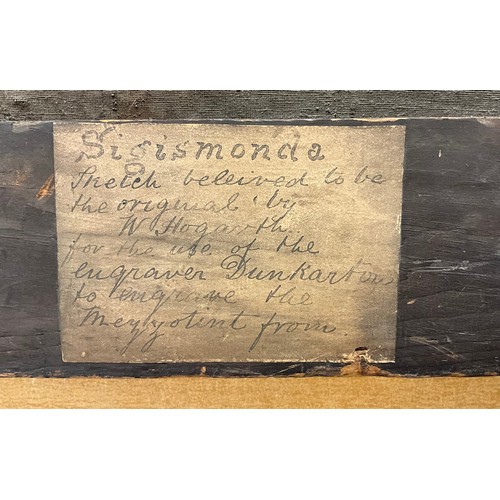 Sigismonda
Sketch beleived to be
the original by
W Hogarth
for the use of the
engraver Dunkarton
to engrave the
Mezzotint from.